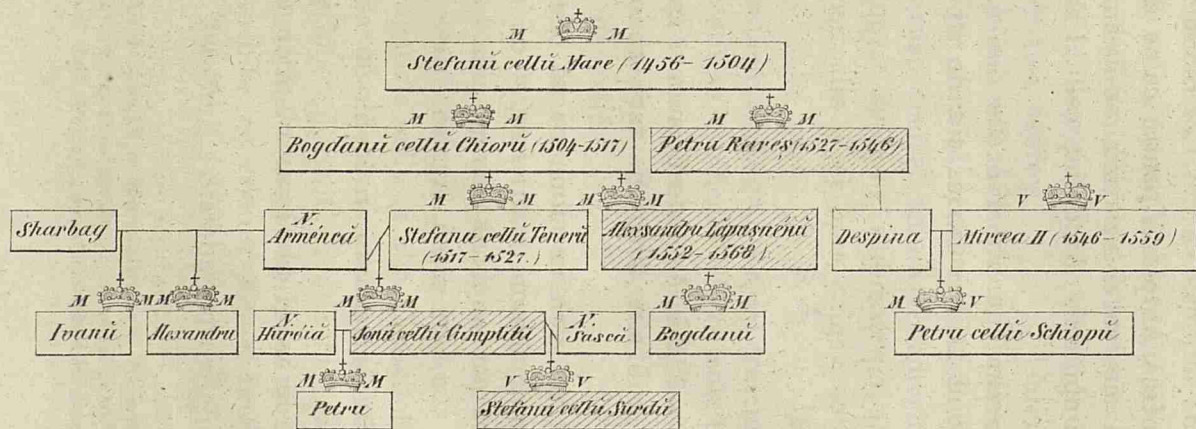 M M
Stefanŭ cellŭ Mare (1456–1504)
M M M M
Bogdanŭ cellŭ Chiorŭ (1504-1517) Petru Rareş (1527–1546)
M M M M V V
Sharbag N. Arméncă Stefanu cellŭ Tenerŭ (1517–1527.) Alexsandru Lăpuşnénŭ (1552–1568) Despina Mircea II (1546–1559)
M M M M M M M M M V
Ivanŭ Alexandru N. Huroiă Jonă cellŭ Cumplitŭ N. Sască Bogdanŭ Petru cellŭ Schiopŭ
M M V V
Petru Stefanŭ cellŭ Surdŭ